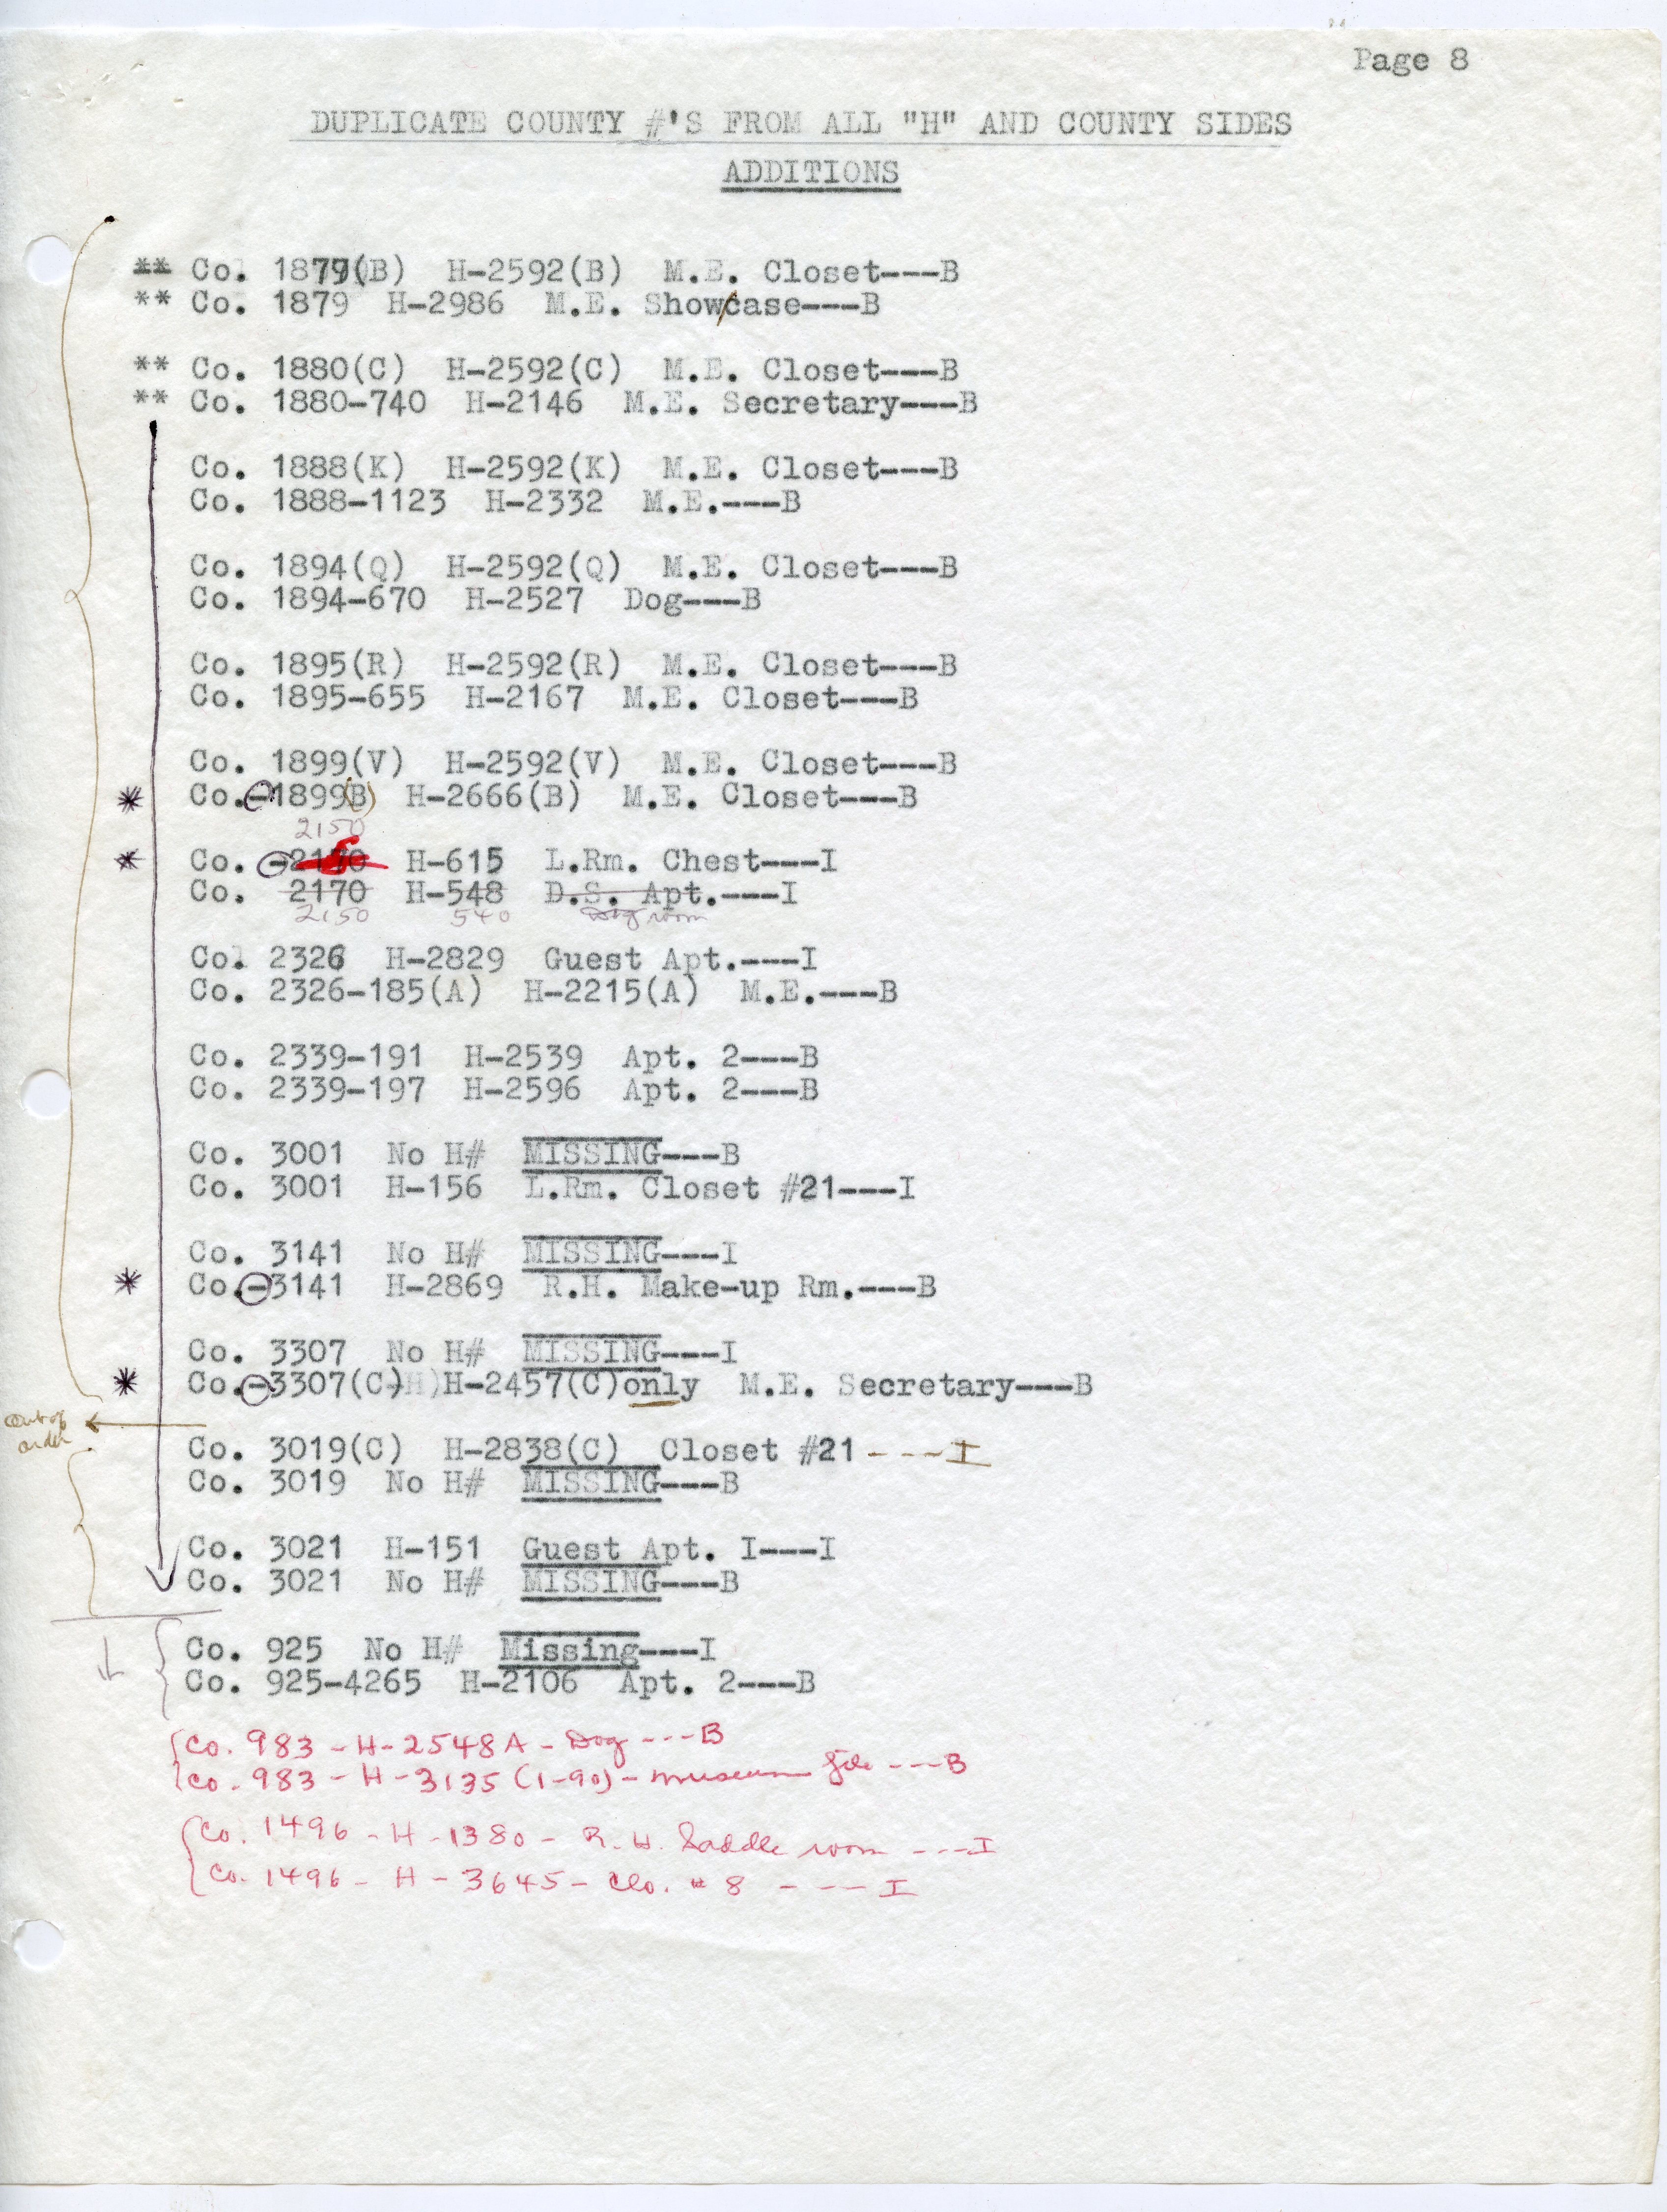 Page 8
DUPLICATE COUNTY #'S FROM ALL "H" AND COUNTY SIDES
ADDITIONS
** Co. 1879(B) H-2592(B) M.E. Closet---B
** Co. 1879 H-2986 M.E. Showcase---B
** Co. 1880(C) H-2592(C) M.E. Closet---B
** Co. 1880-740 H-2146 M.E. Secretary---B
Co. 1888(K) H-2592(K) M.E. Closet---B
Co. 1888-1123 H-2332 M.E.---B
Co. 1894(Q) H-2592(Q) M.E. Closet---B
Co. 1894-670 H-2527 Dog---B
Co. 1895(R) H-2592(R) M.E. Closet---B
Co. 1895-655 H-2167 M.E. Closet---B
Co. 1899(V) H-2592(V) M.E. Closet---B
* Co.-1899(B) H-2666(B) M.E. Closet---B
2150
* Co. -2170 H-615 L.Rm. Chest---I
Co. 2170 H-548 D.S. Apt.---I
2150 540 Dog room
Co. 2326 H-2829 Guest Apt.---I
Co. 2326-185(A) H-2215(A) M.E.---B
Co. 2339-191 H-2539 Apt. 2---B
Co. 2339-197 H-2596 Apt. 2---B
Co. 3001 No H# MISSING---B
Co. 3001 H-156 L.Rm. Closet #21---I
Co. 3141 No H# MISSING---I
* Co.-3141 H-2869 R.H. Make-up Rm.---B
Co. 3307 No H# MISSING---I
* Co.-3307(C) H-2457(C)only M.E. Secretary---B
out of
order
Co. 3019(C) H-2838(C) Closet #21 ---I
Co. 3019 No H# MISSING---B
Co. 3021 H-151 Guest Apt. I---I
Co. 3021 No H# MISSING---B
Co. 925 No H# Missing---I
Co. 925-4265 H-2106 Apt. 2---B
Co. 983 - H-2548A - Dog ---B
Co. 983 - H-3135 (1-90) - museum file ---B
Co. 1496 - H-1380 - R.H. Saddle room ---I
Co. 1496 - H-3645 - Clo. # 8 ----I